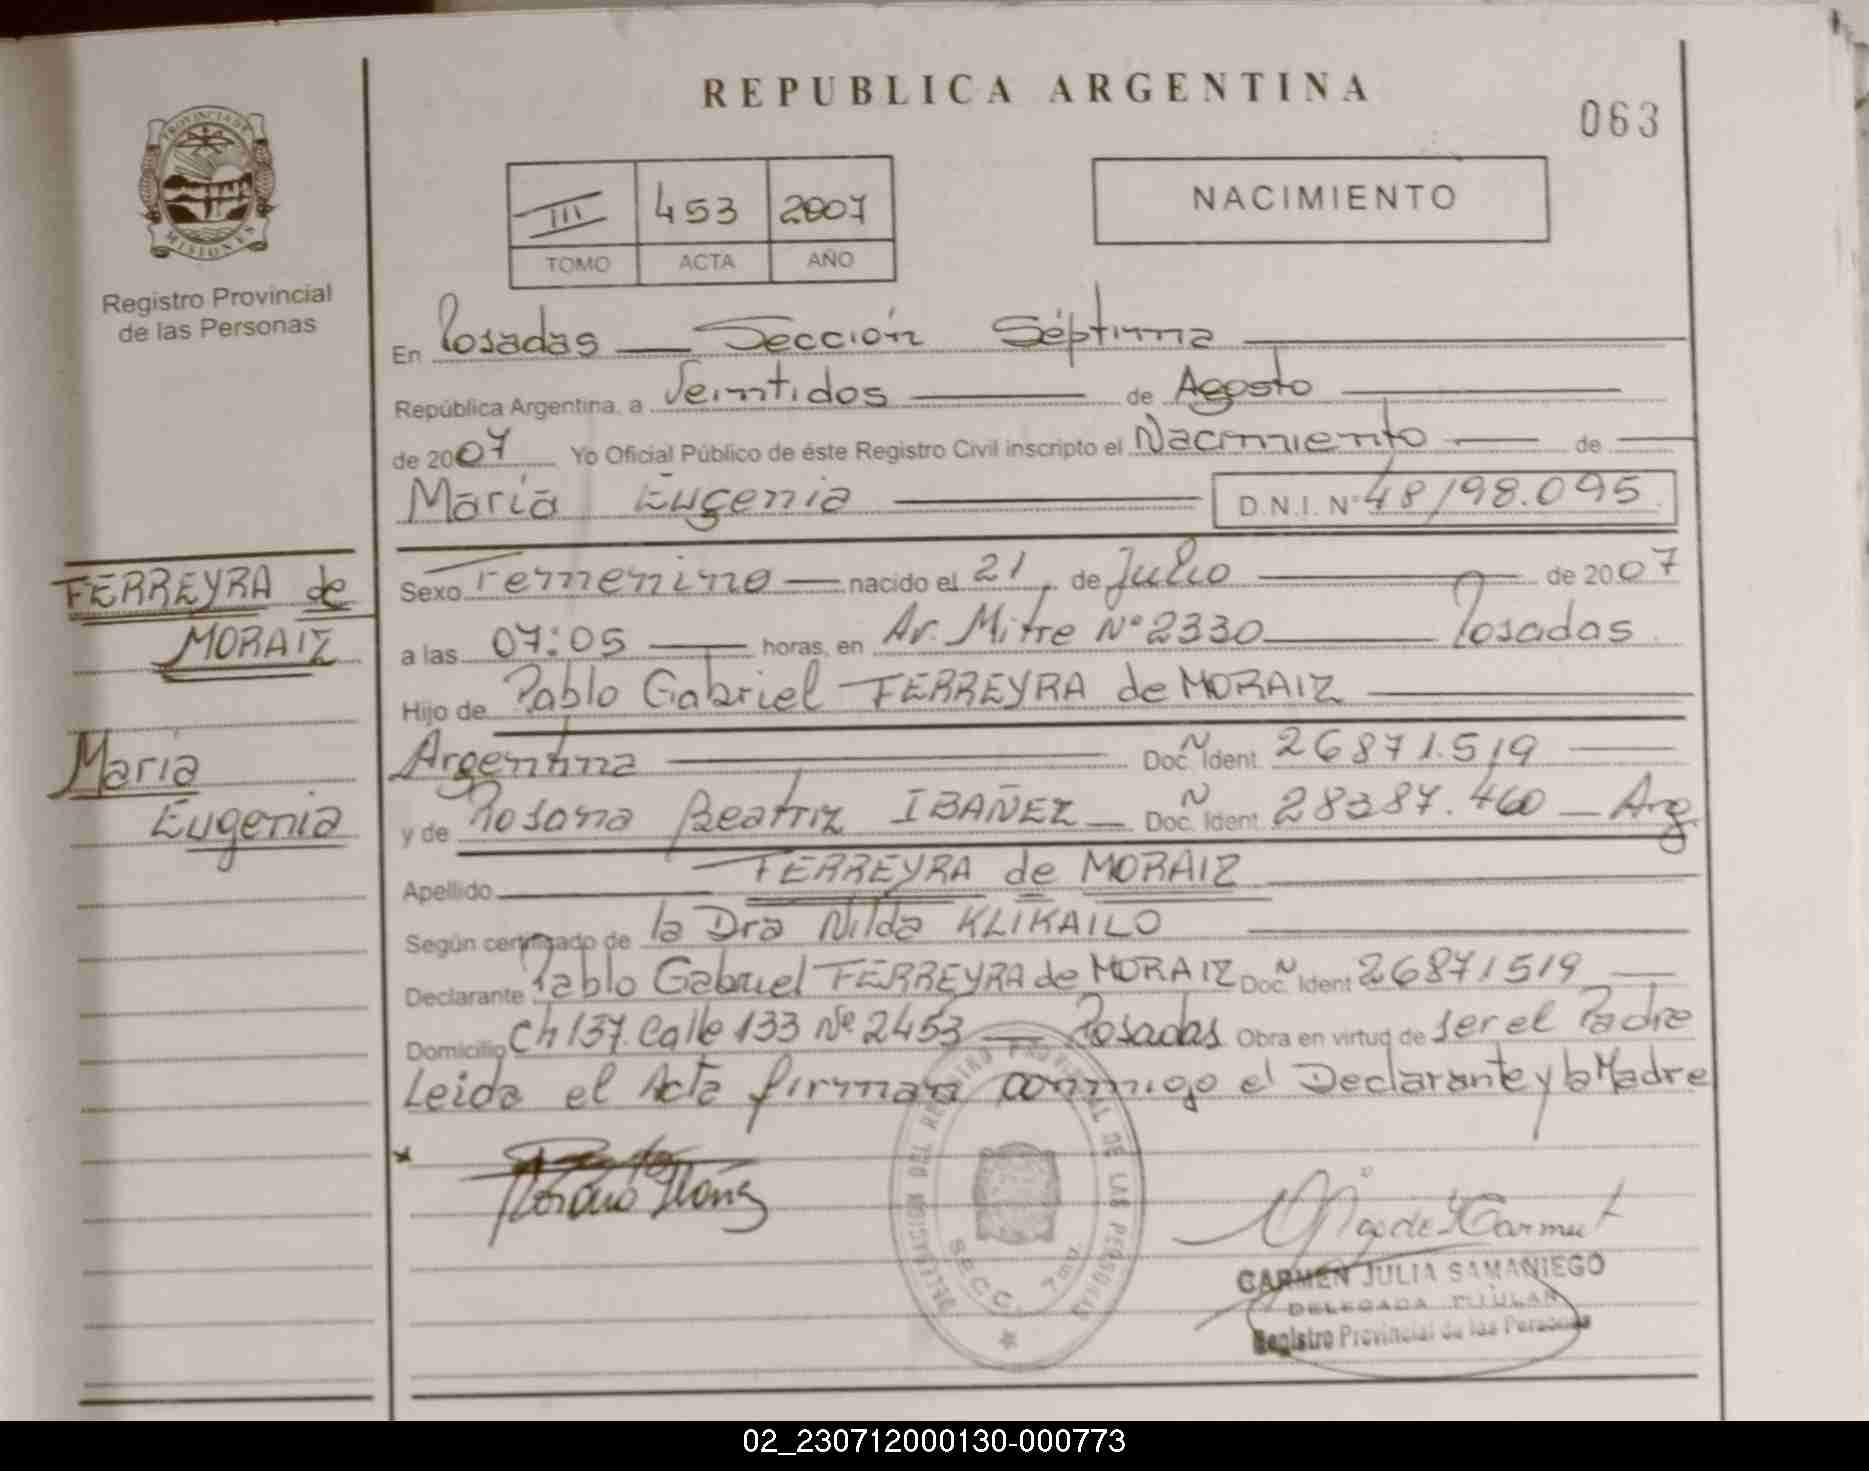 REPUBLICA ARGENTINA
063
PROVINCIA DE
MISIONES
Registro Provincial
de las Personas
III 453 2007
TOMO ACTA AÑO
NACIMIENTO
En Posadas — Sección Séptima
República Argentina, a Veintidos de Agosto
de 2007 Yo Oficial Público de éste Registro Civil inscripto el Nacimiento — de —
María Eugenia D.N.I. Nº 48198.095
FERREYRA de
MORAIZ
María
Eugenia
Sexo Femenino — nacido el 21 de Julio de 2007
a las 07:05 horas, en Av. Mitre Nº 2330 Posadas
Hijo de Pablo Gabriel FERREYRA de MORAIZ
Argentina Doc. Ident. N 26871.519
y de Rosana Beatriz IBAÑEZ — Doc. Ident. N 28387.460 — Arg.
Apellido FERREYRA de MORAIZ
Según certificado de la Dra Nilda KLIKAILO
Declarante Pablo Gabriel FERREYRA de MORAIZ Doc. Ident N 26871519
Domicilio Ch 137 Calle 133 Nº 2453 — Posadas Obra en virtud de ser el Padre
Leida el Acta firman conmigo el Declarante y la Madre
REGISTRO PROVINCIAL DE LAS PERSONAS
SECC. 7ma
CARMEN JULIA SAMANIEGO
DELEGADA TITULAR
Registro Provincial de las Personas
02_230712000130-000773